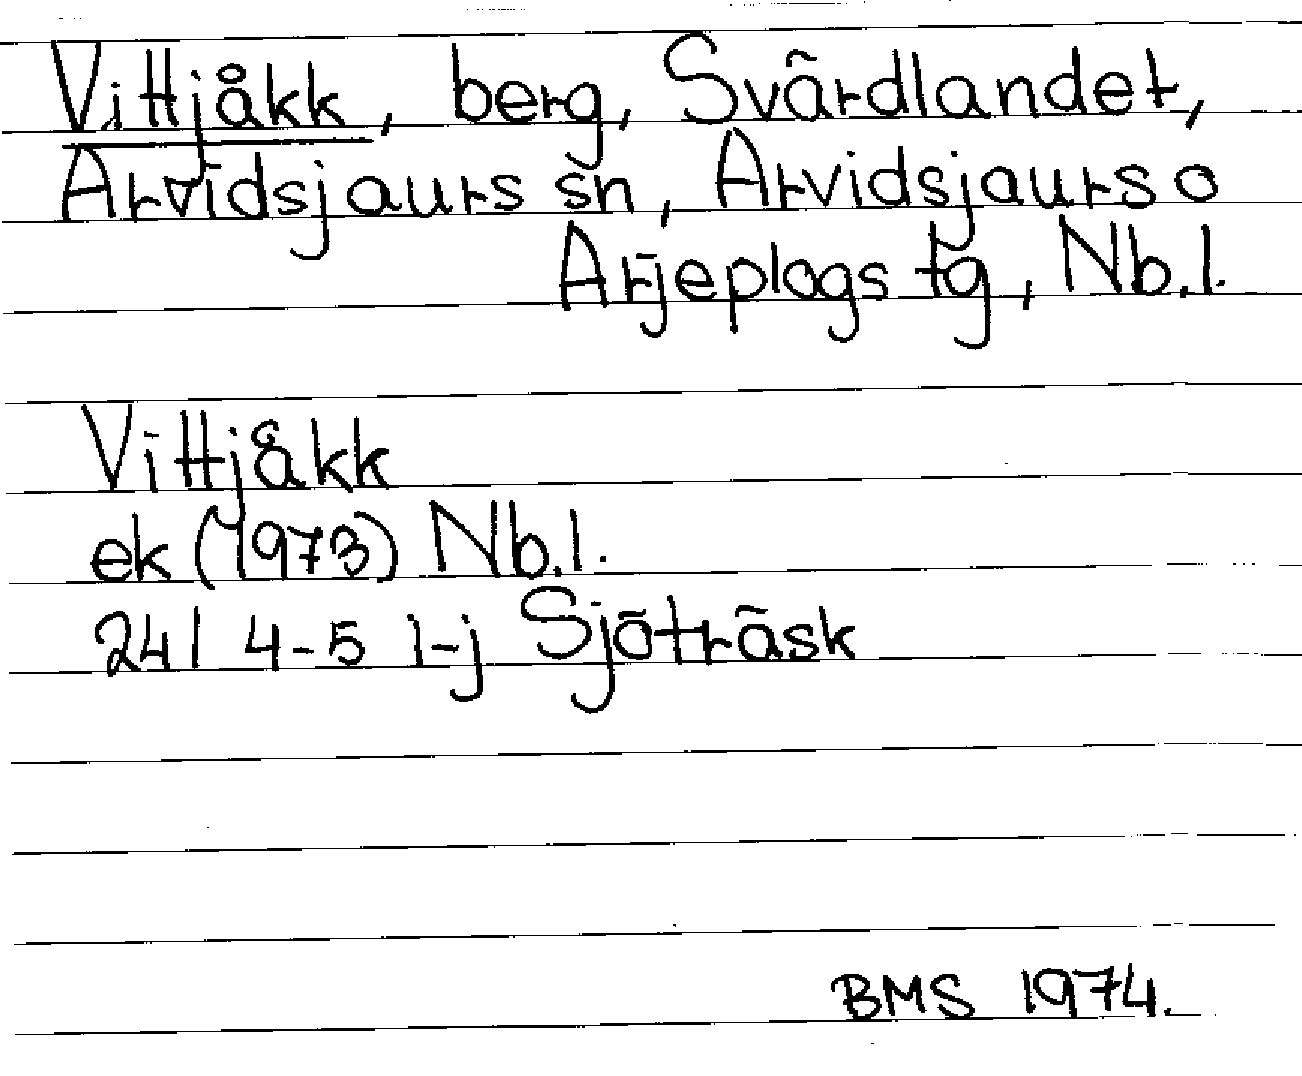 Vittjåkk, berg, Svärdlandet,
Arvidsjaurs sn, Arvidsjaurs o
Arjeplogs tg, Nb.l.
Vittjåkk
ek (1973) Nb.l.
24I 4-5 i-j Sjöträsk
BMS 1974.